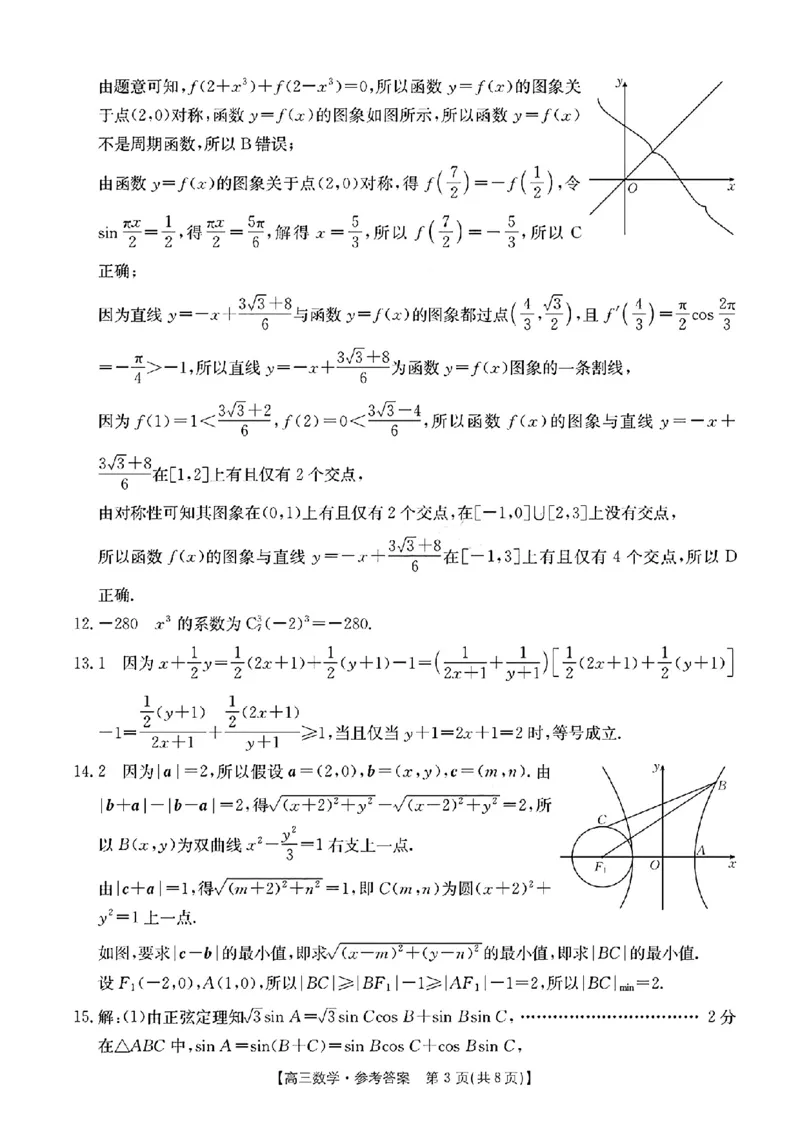 由题意可知,f(2+x³)+f(2-x³)=0,所以函数 y=f(x)的图象关
于点(2,0)对称,函数 y=f(x)的图象如图所示,所以函数 y=f(x)
不是周期函数,所以 B 错误;
由函数 y=f(x)的图象关于点(2,0)对称,得 f(7/2)=-f(1/2),令
sin πx/2=1/2,得πx/2=5π/6,解得 x=5/3,所以 f(7/2)=-5/3,所以 C
正确;
因为直线 y=-x+(3√3+8)/6与函数 y=f(x)的图象都过点(4/3,√3/2),且 f′(4/3)=π/2 cos 2π/3
=-π/4>-1,所以直线 y=-x+(3√3+8)/6为函数 y=f(x)图象的一条割线,
因为 f(1)=1<(3√3+2)/6,f(2)=0<(3√3-4)/6,所以函数 f(x)的图象与直线 y=-x+
(3√3+8)/6在[1,2]上有且仅有 2 个交点,
由对称性可知其图象在(0,1)上有且仅有 2 个交点,在[-1,0]∪[2,3]上没有交点,
所以函数 f(x)的图象与直线 y=-x+(3√3+8)/6在[-1,3]上有且仅有 4 个交点,所以 D
正确.
y
O
x
12.-280 x³ 的系数为 C₇³(-2)³=-280.
13.1 因为 x+1/2y=1/2(2x+1)+1/2(y+1)-1=(1/(2x+1)+1/(y+1))[1/2(2x+1)+1/2(y+1)]
-1=(1/2(y+1))/(2x+1)+(1/2(2x+1))/(y+1)≥1,当且仅当 y+1=2x+1=2 时,等号成立.
14.2 因为|a|=2,所以假设 a=(2,0),b=(x,y),c=(m,n).由
|b+a|-|b-a|=2,得√((x+2)²+y²)-√((x-2)²+y²)=2,所
以 B(x,y)为双曲线 x²-y²/3=1 右支上一点.
由|c+a|=1,得√((m+2)²+n²)=1,即 C(m,n)为圆(x+2)²+
y²=1 上一点.
y
B
C
F₁
O
A
x
如图,要求|c-b|的最小值,即求√((x-m)²+(y-n)²)的最小值,即求|BC|的最小值.
设 F₁(-2,0),A(1,0),所以|BC|≥|BF₁|-1≥|AF₁|-1=2,所以|BC|min=2.
15.解:(1)由正弦定理知√3sin A=√3sin Ccos B+sin Bsin C, ………………………… 2 分
在△ABC 中,sin A=sin(B+C)=sin Bcos C+cos Bsin C,
【高三数学·参考答案 第 3 页(共 8 页)】